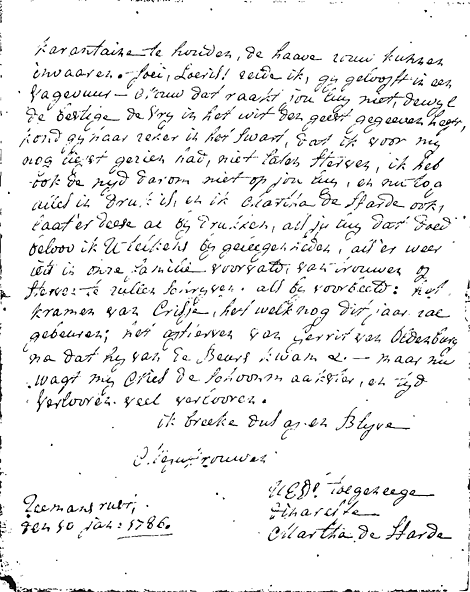 karantaine te houden, de haave zouw kunnen
invaaren. foei, Loeris! zeide ik, gy gelooft in een
vagevuur — vrouw dat raakt jou luy niet, dewyl
de beestige de Vry in het wit den geest gegeeven heeft,
kond gy haar zeker in het swart, dat ik voor my
nog liefst gezien had, niet laten sterven, ik heb
ook de nyd daarom niet op jou luy, en nu
alles in druk is, en ik Martha de Harde ook,
laat er deese al by drukken, als je luy dat doed
beloov ik U telkens by geleegenheden, als er weer
iets in onze familie voorvald, van trouwen of
sterven te zullen schryven. als by voorbeeld: het
kramen van Crisje, het welk nog dit jaar zal
gebeuren; het afsterven van Gerrit van Oldenburg
na dat hy van de Beurs kwam &. — maar nu
wagt my Criel de schoonmaakster, en tyd
verlooren veel verlooren.
ik breeke dus af en Blyve
Mejuffrouwen
UEDs. toegeneege
Martha de Harde
Zeemans rust,
den 30 jan: 1786.